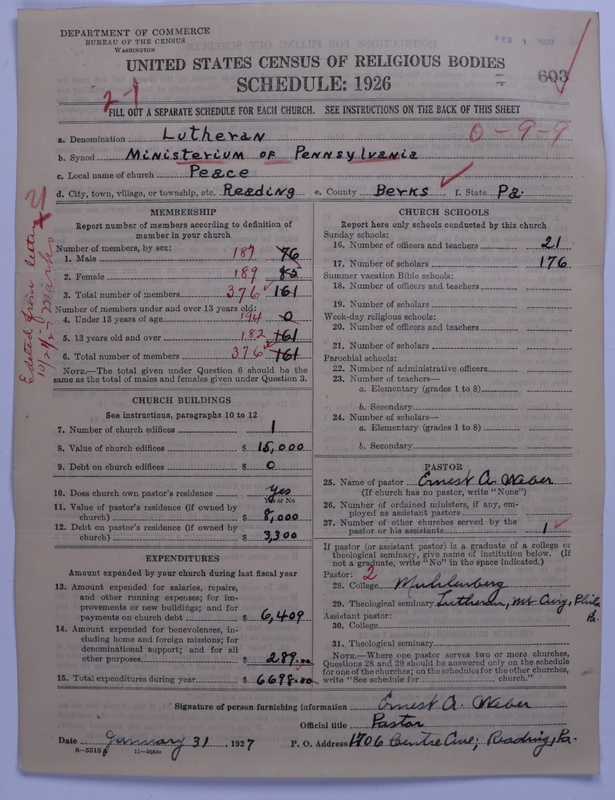 DEPARTMENT OF COMMERCE
BUREAU OF THE CENSUS
WASHINGTON
UNITED STATES CENSUS OF RELIGIOUS BODIES
SCHEDULE: 1926
603
2-1
FILL OUT A SEPARATE SCHEDULE FOR EACH CHURCH. SEE INSTRUCTIONS ON THE BACK OF THIS SHEET
0-9-9
a. Denomination Lutheran
b. Synod Ministerium of Pennsylvania
c. Local name of church Peace
d. City, town, village, or township, etc. Reading e. County Berks f. State Pa.
Edited from letter
MEMBERSHIP
Report number of members according to definition of
member in your church
Number of members, by sex:
1. Male 187 76
2. Female 189 85
3. Total number of members 376 161
Number of members under and over 13 years old:
4. Under 13 years of age 194 0
5. 13 years old and over 182 161
6. Total number of members 376 161
NOTE.—The total given under Question 6 should be
same as the total of males and females given under Question 3.
CHURCH BUILDINGS
See instructions, paragraphs 10 to 12
7. Number of church edifices 1
8. Value of church edifices $ 15,000
9. Debt on church edifices $ 0
10. Does church own pastor's residence yes
Yes or No
11. Value of pastor's residence (if owned by
church) $ 8,000
12. Debt on pastor's residence (if owned by
church) $ 3,300
EXPENDITURES
Amount expended by your church during last fiscal year
13. Amount expended for salaries, repairs,
and other running expenses; for im-
provements or new buildings; and for
payments on church debt $ 6,409
14. Amount expended for benevolences, in-
cluding home and foreign missions; for
denominational support; and for all
other purposes $ 289.00
15. Total expenditures during year $ 6698.00
CHURCH SCHOOLS
Report here only schools conducted by this church
Sunday schools:
16. Number of officers and teachers 21
17. Number of scholars 176
Summer vacation Bible schools:
18. Number of officers and teachers
19. Number of scholars
Week-day religious schools:
20. Number of officers and teachers
21. Number of scholars
Parochial schools:
22. Number of administrative officers
23. Number of teachers—
a. Elementary (grades 1 to 8)
b. Secondary
24. Number of scholars—
a. Elementary (grades 1 to 8)
b. Secondary
PASTOR
25. Name of pastor Ernest A. Weber
(If church has no pastor, write "None")
26. Number of ordained ministers, if any, em-
ployed as assistant pastors
27. Number of other churches served by the
pastor or his assistants 1
If pastor (or assistant pastor) is a graduate of a college or
theological seminary, give name of institution below. (If
not a graduate, write "No" in the space indicated.)
Pastor: 2
28. College Muhlenberg
29. Theological seminary Lutheran, Mt Airy, Phila
Pa.
Assistant pastor:
30. College
31. Theological seminary
NOTE.—Where one pastor serves two or more churches,
Questions 28 and 29 should be answered only on the schedule
for one of the churches; on the schedules for the other churches,
write "See schedule for church."
Signature of person furnishing information Ernest A. Weber
Official title Pastor
Date January 31, 1927 P. O. Address 1706 Centre Ave; Reading, Pa.